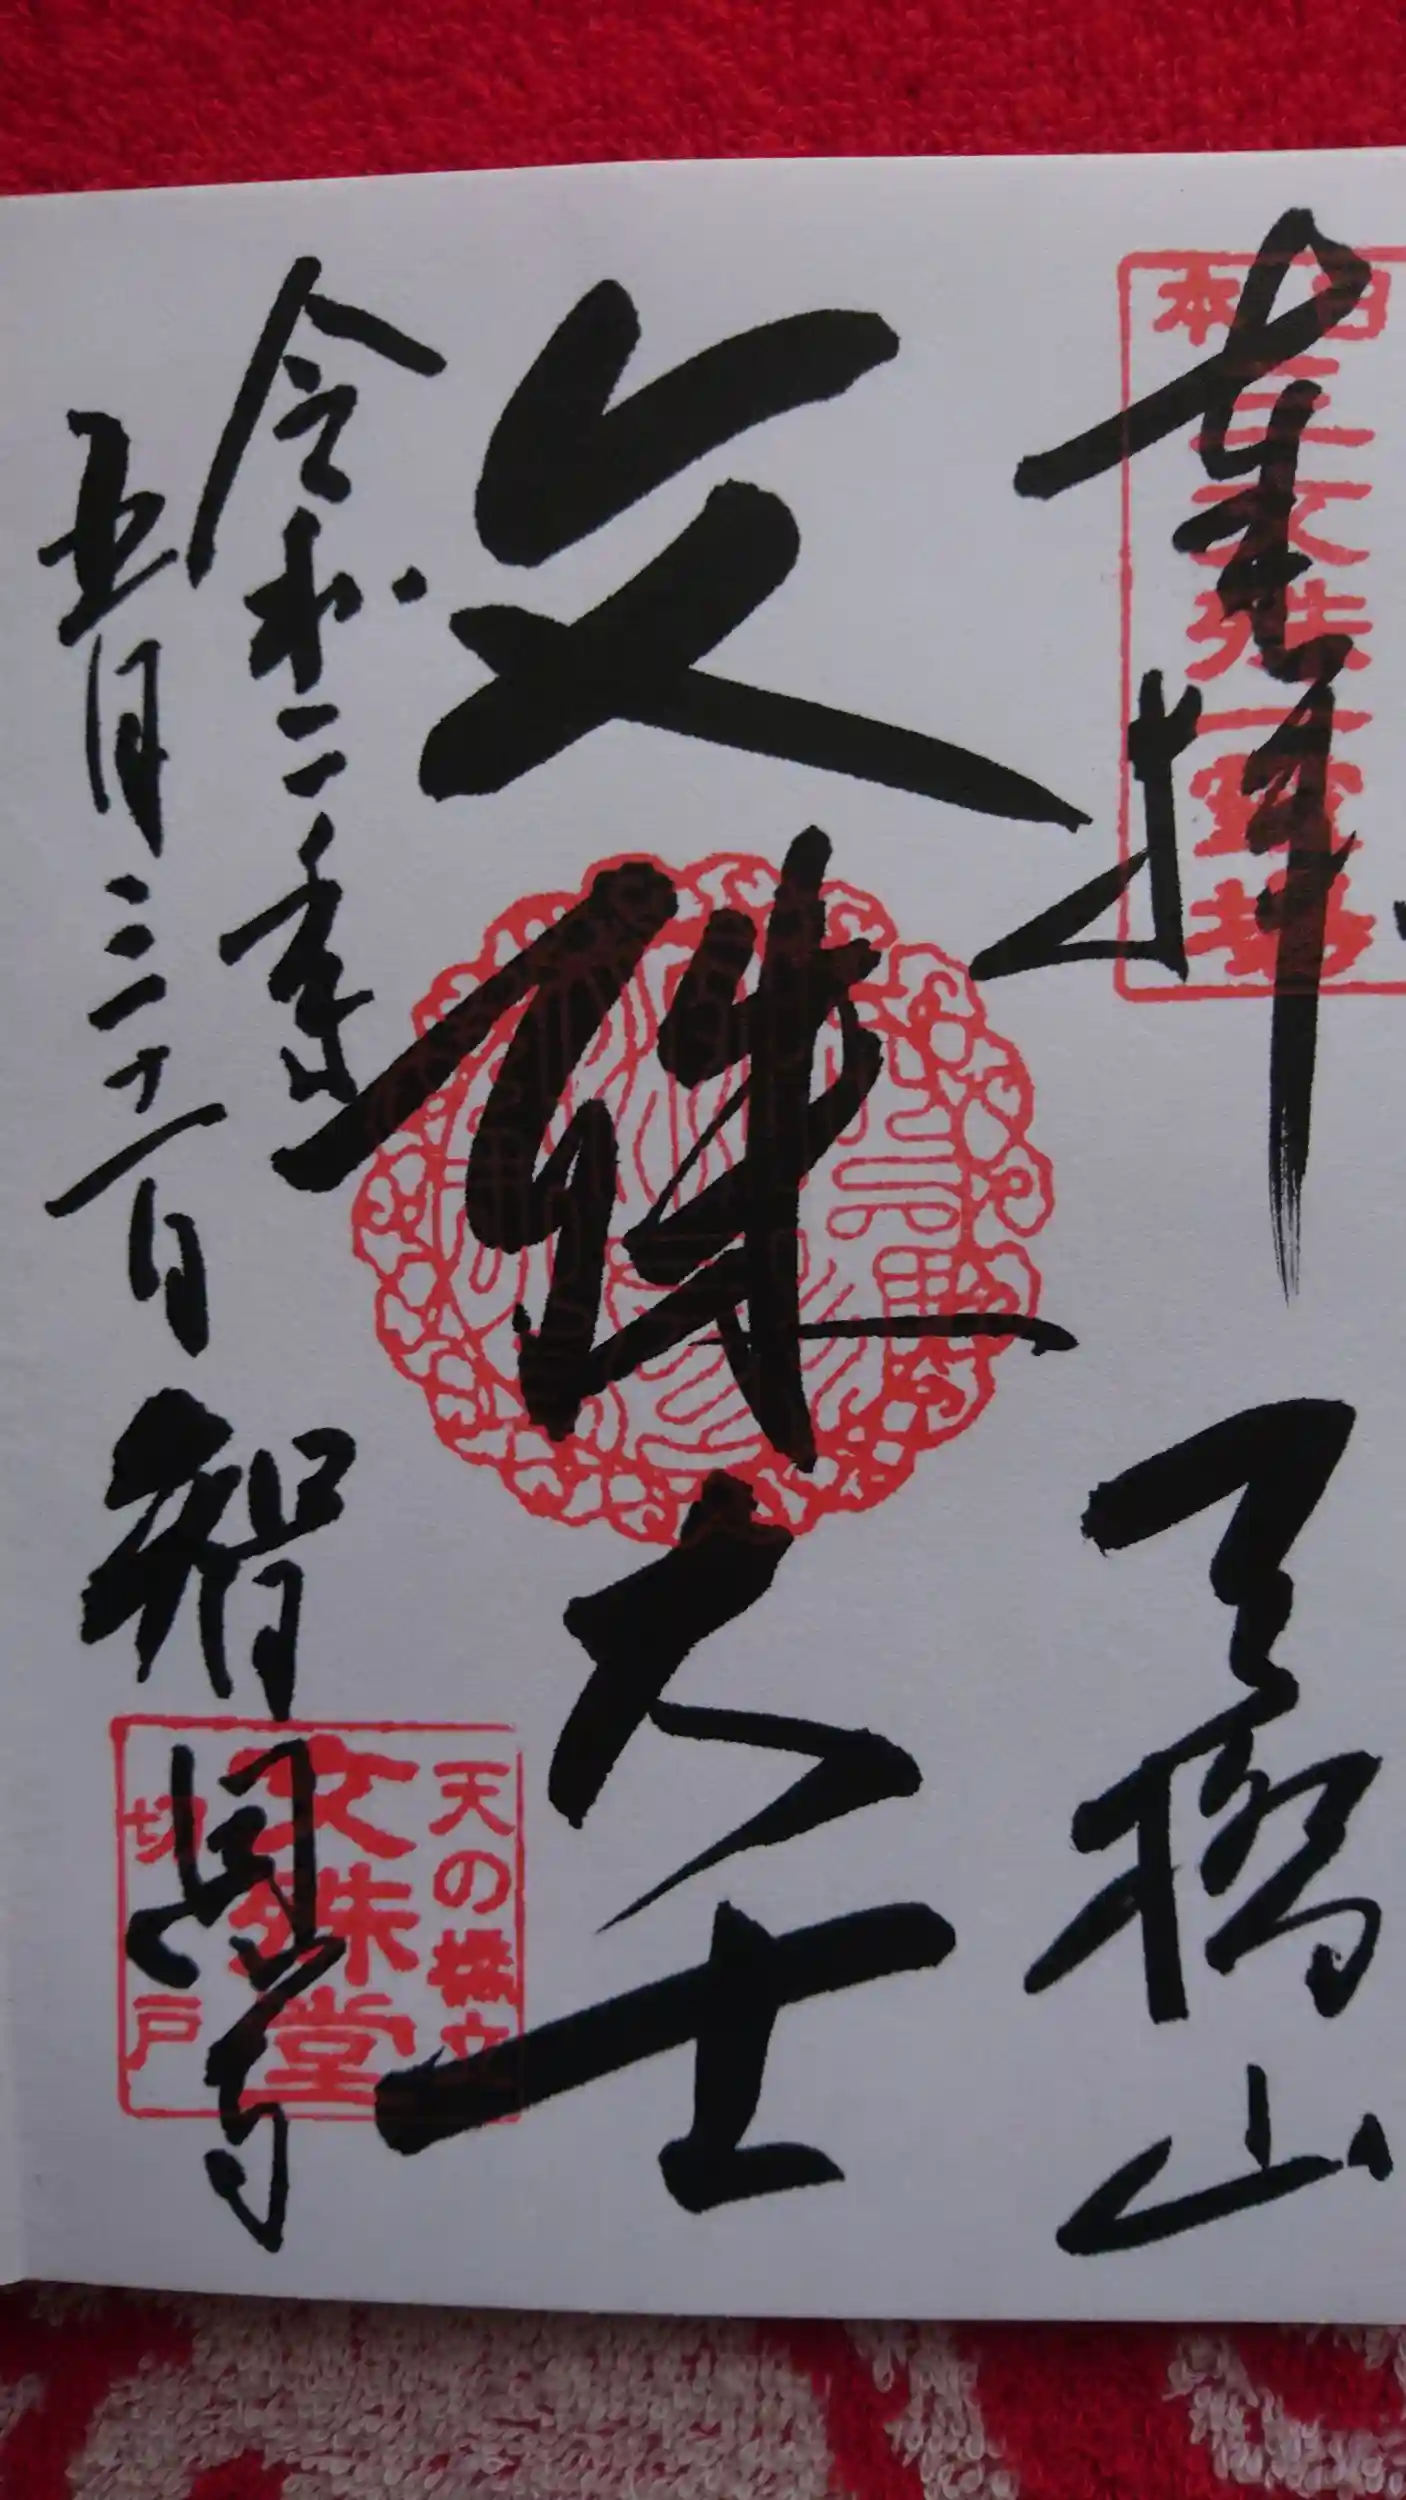 奉拝
天橋山
日本三文殊
霊場
文殊大士
令和二年
五月三十一日
智恩寺
天の橋立
文殊堂
切戸